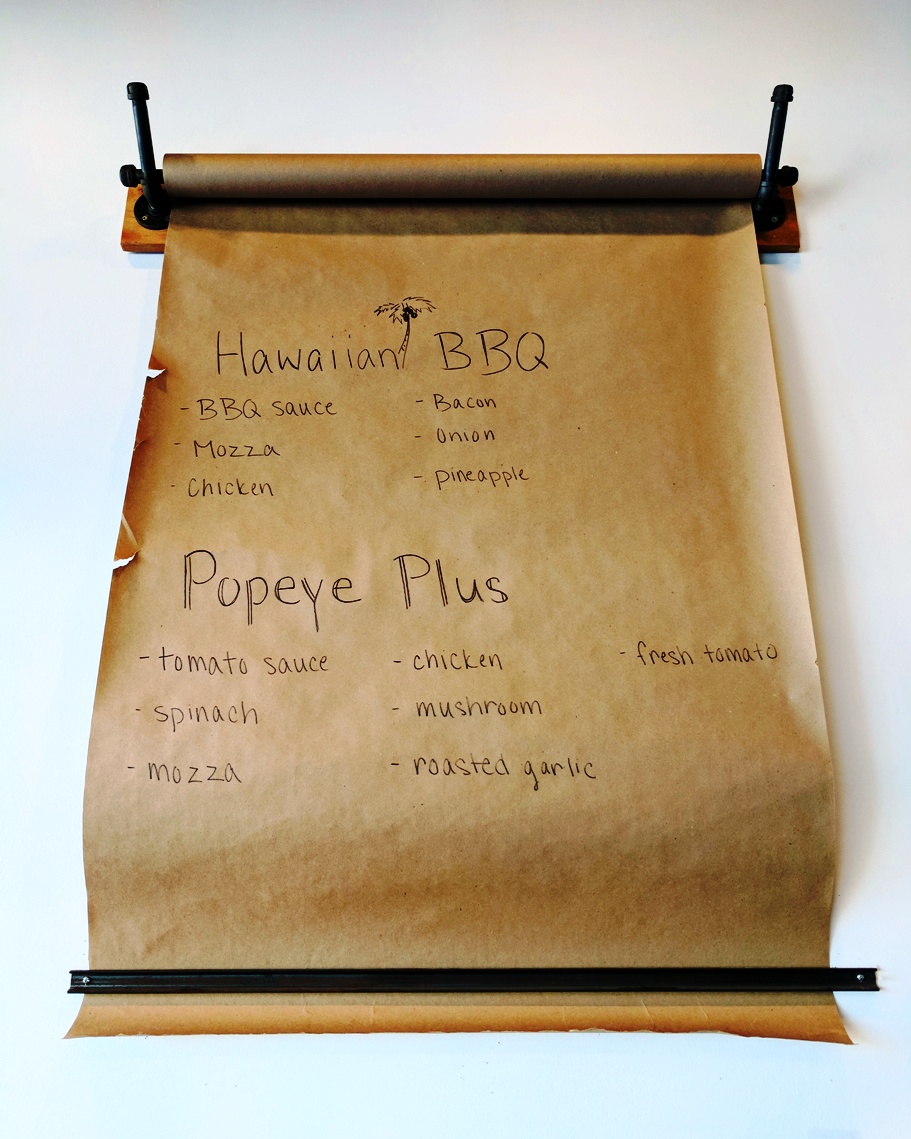 Hawaiian BBQ
- BBQ sauce - Bacon
- Mozza - Onion
- Chicken - pineapple
Popeye Plus
- tomato sauce - chicken - fresh tomato
- spinach - mushroom
- mozza - roasted garlic